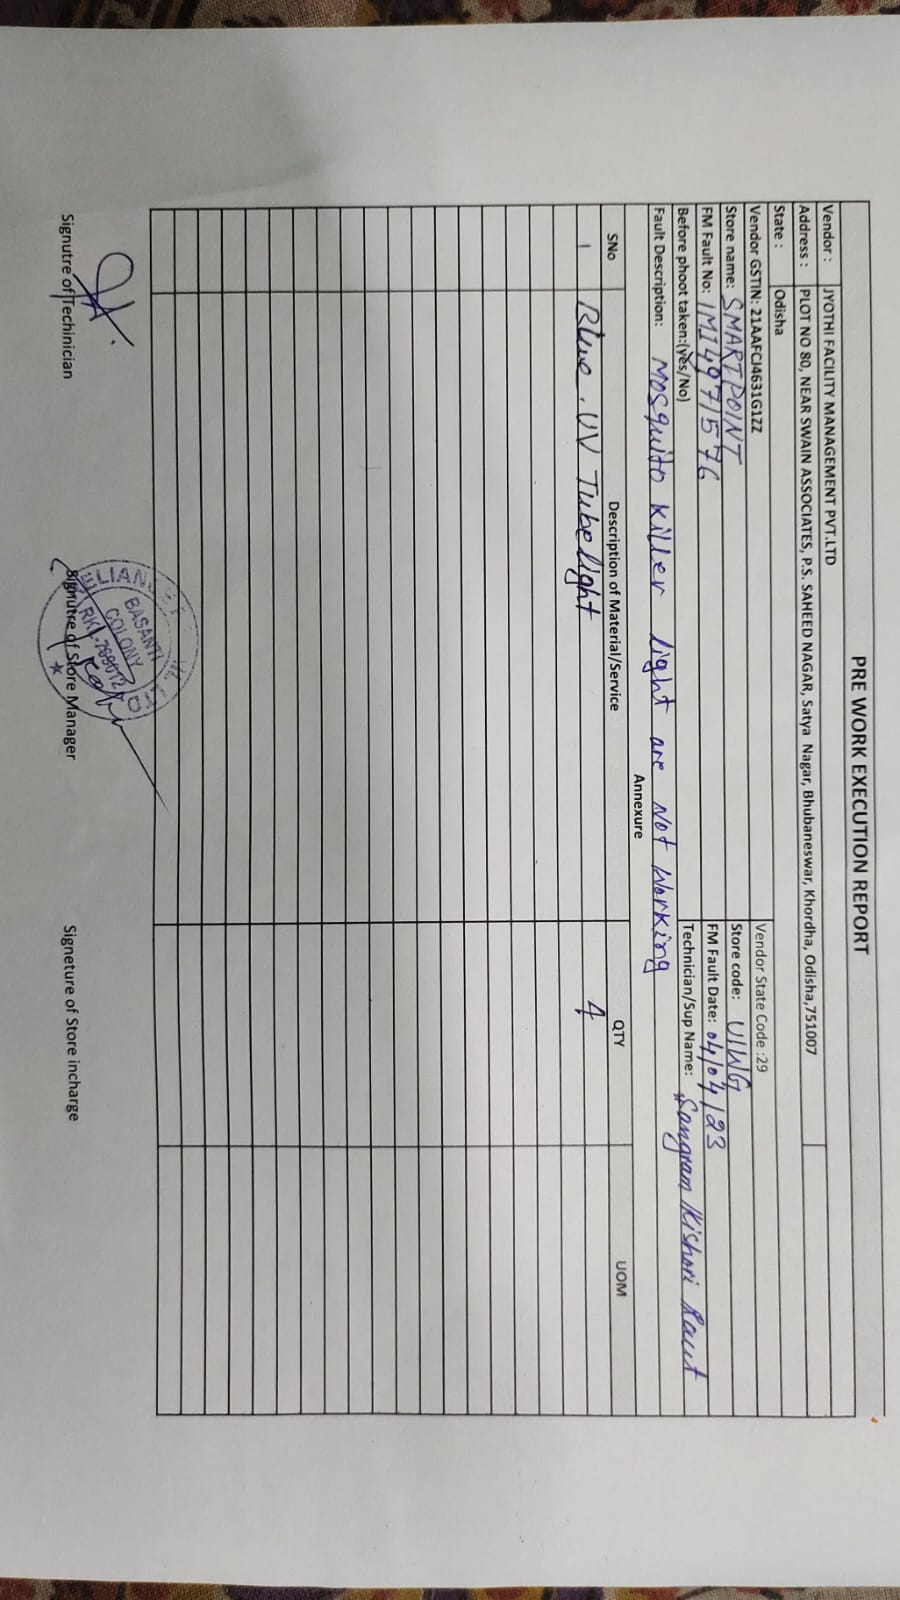 PRE WORK EXECUTION REPORT
Vendor : JYOTHI FACILITY MANAGEMENT PVT.LTD
Address : PLOT NO 80, NEAR SWAIN ASSOCIATES, P.S. SAHEED NAGAR, Satya Nagar, Bhubaneswar, Khordha, Odisha,751007
State : Odisha
Vendor GSTIN: 21AAFCJ4631G1ZZ Vendor State Code :29
Store name: SMARTPOINT Store code: UIWG
FM Fault No: IM14971576 FM Fault Date: 04/04/23
Before phoot taken:(yes/No) Technician/Sup Name: Sangram Kishori Raut
Fault Description: Mosquito Killer light are Not Working
Annexure
SNo Description of Material/Service QTY UOM
1 Blue. UV Tubelight 4
BASANTI
COLONY
Signutre of Techinician Signutre of Store Manager Signeture of Store incharge